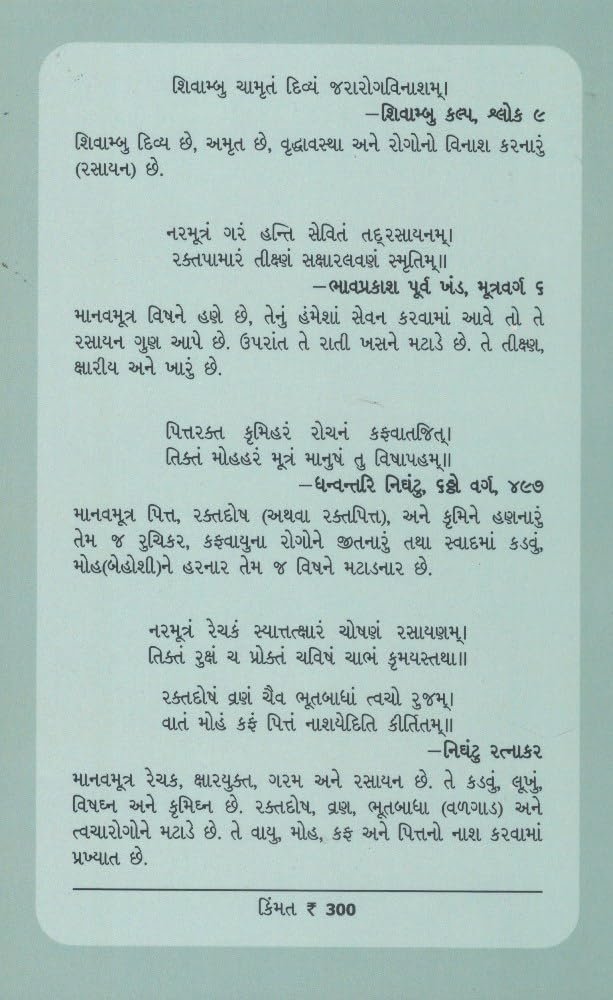 શિવામ્બુ ચામૃતં દિવ્યં જરારોગવિનાશમ્।
–શિવામ્બુ કલ્પ, શ્લોક ૯
શિવામ્બુ દિવ્ય છે, અમૃત છે, વૃદ્ધાવસ્થા અને રોગોનો વિનાશ કરનારું
(રસાયન) છે.
નરમૂત્રં ગરં હન્તિ સેવિતં તદ્રસાયનમ્।
રક્તપામારં તીક્ષ્ણં સક્ષારલવણં સ્મૃતિમ્॥
–ભાવપ્રકાશ પૂર્વ ખંડ, મૂત્રવર્ગ ૬
માનવમૂત્ર વિષને હણે છે, તેનું હંમેશાં સેવન કરવામાં આવે તો તે
રસાયન ગુણ આપે છે. ઉપરાંત તે રાતી ખસને મટાડે છે. તે તીક્ષ્ણ,
ક્ષારીય અને ખારું છે.
પિત્તરક્ત કૃમિહરં રોચનં કફવાતજિત્।
તિક્તં મોહહરં મૂત્રં માનુષં તુ વિષાપહમ્॥
–ધન્વન્તરિ નિઘંટુ, ૬ઠ્ઠો વર્ગ, ૪૯૭
માનવમૂત્ર પિત્ત, રક્તદોષ (અથવા રક્તપિત્ત), અને કૃમિને હણનારું
તેમ જ રુચિકર, કફવાયુના રોગોને જીતનારું તથા સ્વાદમાં કડવું,
મોહ(બેહોશી)ને હરનાર તેમ જ વિષને મટાડનાર છે.
નરમૂત્રં રેચકં સ્યાત્તત્ક્ષારં ચોષણં રસાયણમ્।
તિક્તં રુક્ષં ચ પ્રોક્તં ચવિષં ચાભં કૃમયસ્તથા॥
રક્તદોષં વ્રણં ચૈવ ભૂતબાધાં ત્વચો રુજમ્।
વાતં મોહં કફં પિત્તં નાશયેદિતિ કીર્તિતમ્॥
–નિઘંટુ રત્નાકર
માનવમૂત્ર રેચક, ક્ષારયુક્ત, ગરમ અને રસાયન છે. તે કડવું, લૂખું,
વિષઘ્ન અને કૃમિઘ્ન છે. રક્તદોષ, વ્રણ, ભૂતબાધા (વળગાડ) અને
ત્વચારોગોને મટાડે છે. તે વાયુ, મોહ, કફ અને પિત્તનો નાશ કરવામાં
પ્રખ્યાત છે.
કિંમત ₹ 300